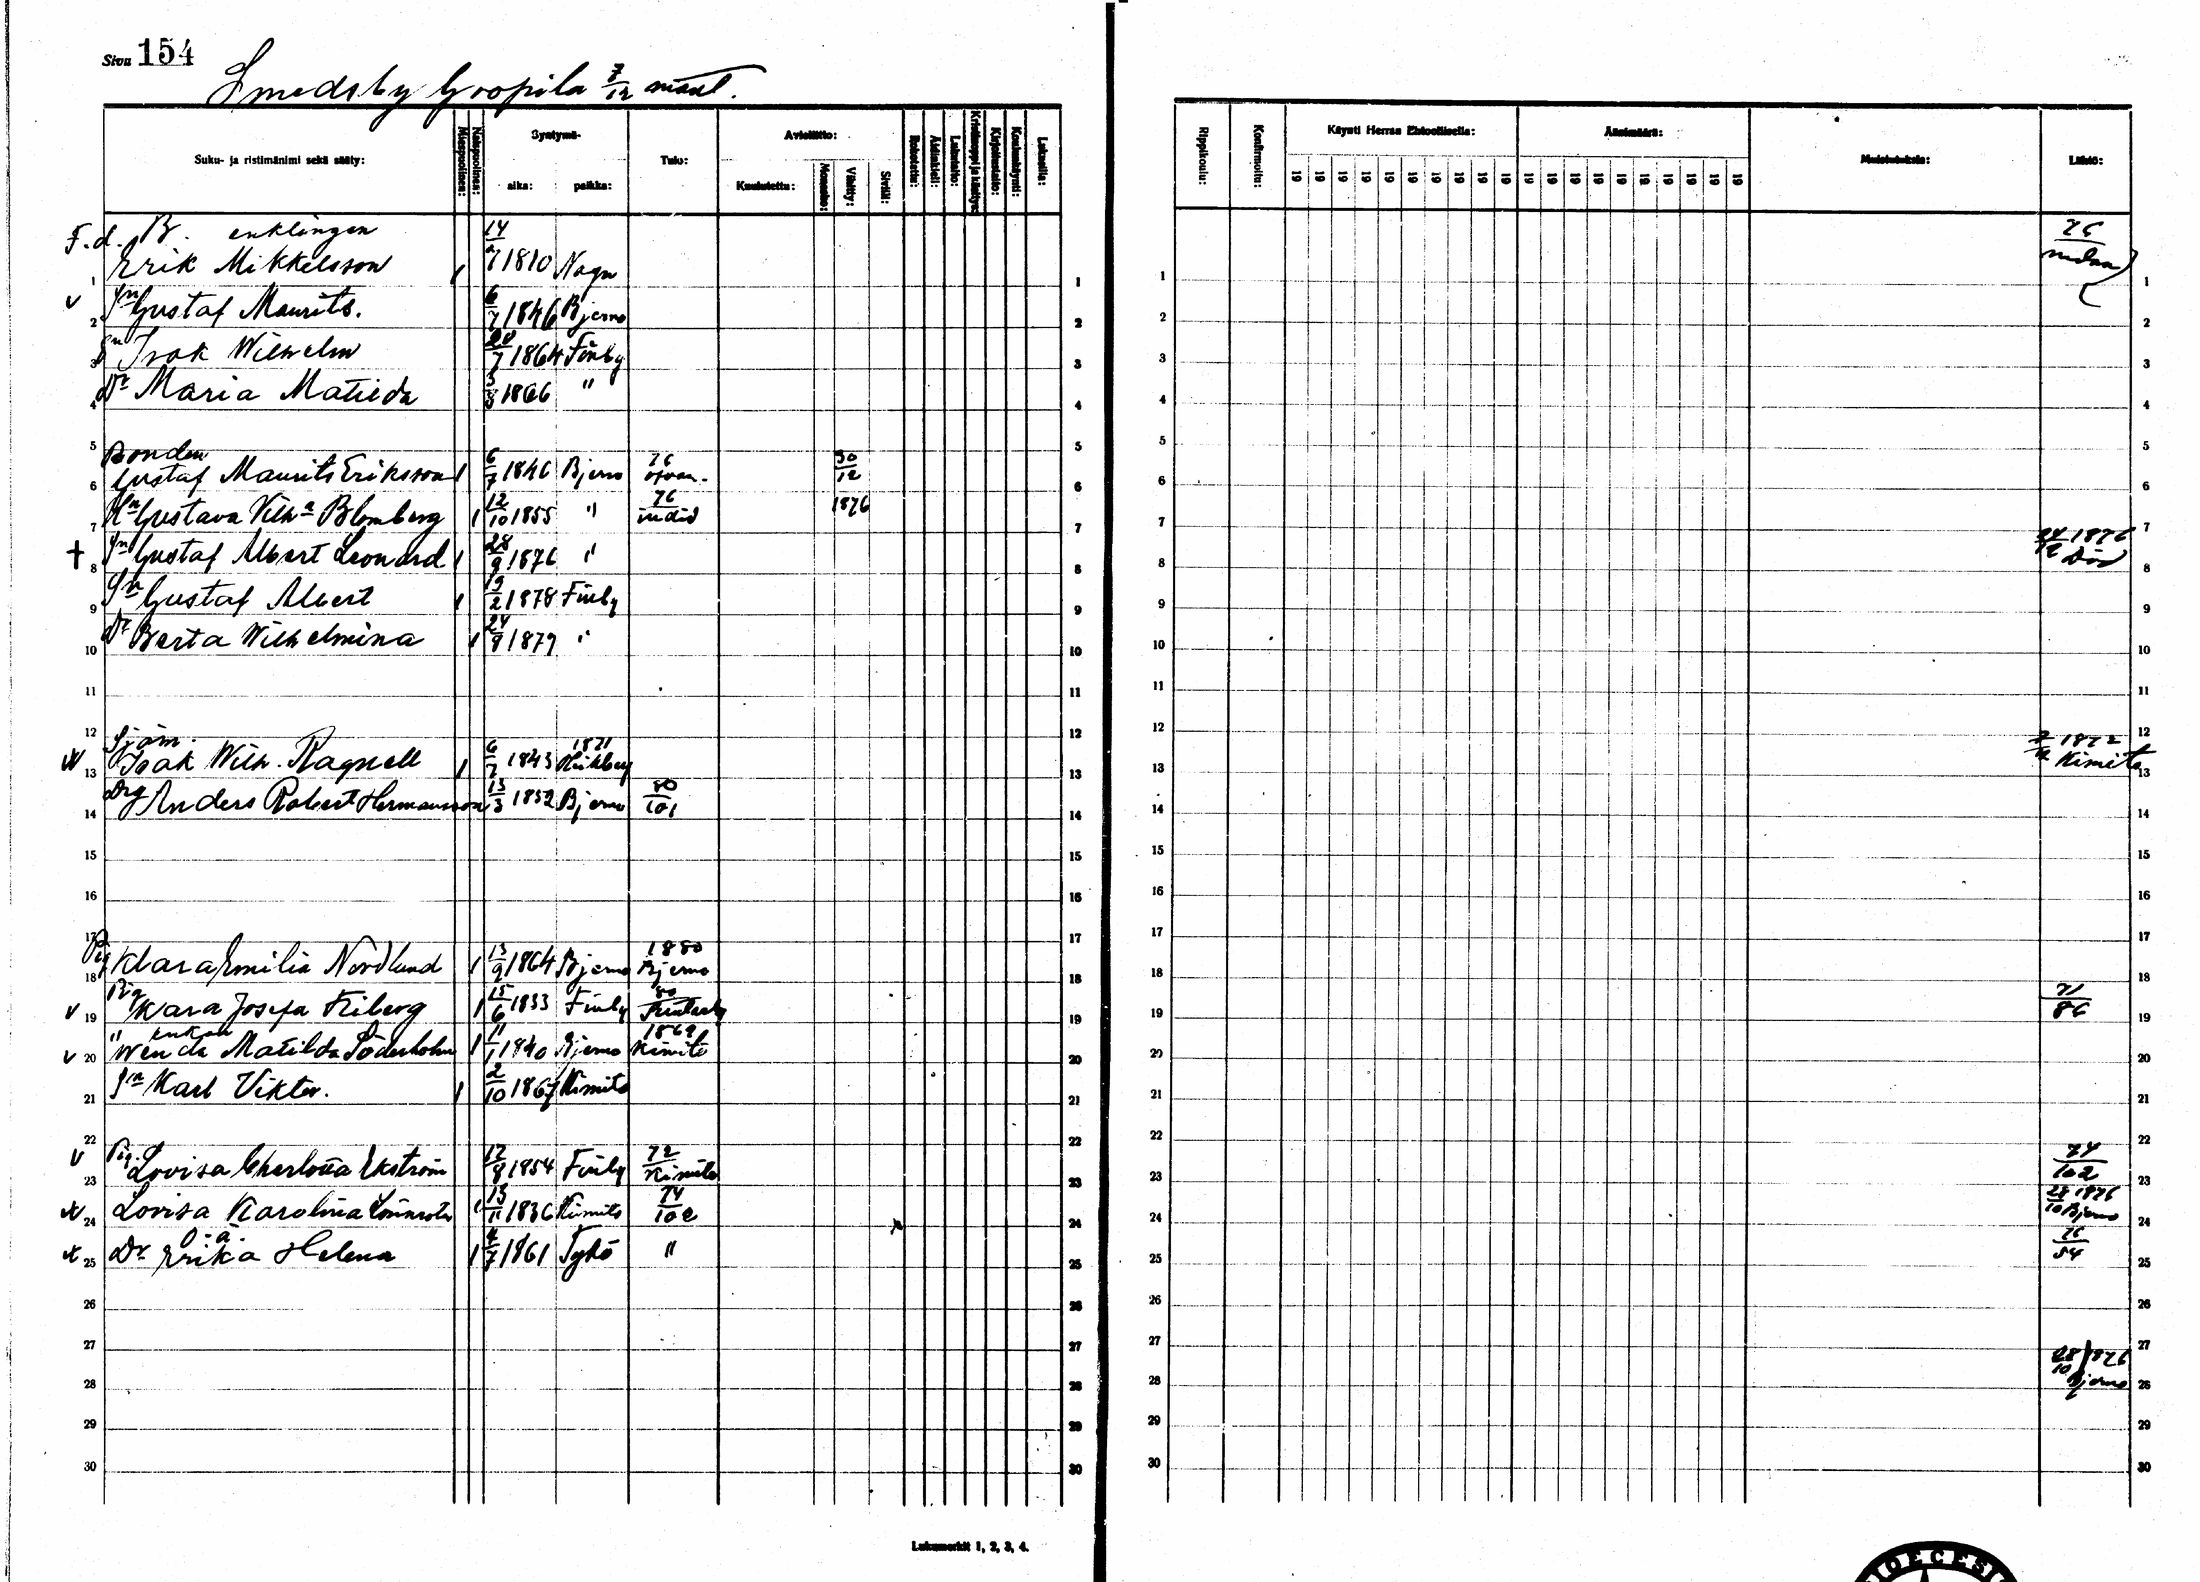 Sivu 154
Smedsby Goopila 7/12 mantl.
Suku- ja ristimänimi sekä sääty: Miespuolinen: Naispuolinen: Syntymä- aika: paikka: Tulo: Avioliitto: Kuulutettu: Morsio: Vihitty: Siviili: Rokotettu: Äidinkieli: Lukutaito: Kristinoppi ja käsitys: Kirjoitustaito: Koulunkäynti: Lukusilla:
Rippikoulu: Konfirmoitu: Käynti Herran Ehtoollisella: Äänimäärä: Muistutuksia: Lähtö:
19 19 19 19 19 19 19 19 19 19 19 19 19 19 19 19 19 19 19 19
F.d. B. enklingen 14 76
Erik Mikkelsson 1 7 1810 Nagu nedan
1 1 1 1
v Sn Gustaf Maurits. 6/7 1846 Bjerno
2 2 2 2
Sn Isak Wilhelm 20/7 1864 Finby
3 3 3 3
Dr Maria Matilda 3/3 1866 "
4 4 4 4
5 5 5 5
Bonden
Gustaf Maurits Eriksson 1 6/7 1846 Bjerno 76 ofvan. 30/12
6 6 6 6
Hn Gustava Vilha Blomberg 1 12/10 1855 " 76 1876
7 7 7 7
† Sn Gustaf Albert Leonard 1 28/9 1876 " 24/12 1876 Död
8 8 8 8
Sn Gustaf Albert 1 19/2 1878 Finby
9 9 9 9
Dr Berta Wilhelmina 1 24/9 1879 "
10 10 10 10
11 11 11 11
12 12 12 12
Sjöm. 1871
Isak Wilh. Ragnell 1 6/7 1843 1872 Kimito
13 13 13 13
Drg Anders Robert Hermansson 13/3 1852 Bjerno 80/101
14 14 14 14
15 15 15 15
16 16 16 16
17 17 17 17
Pig Klara Emilia Nordlund 1 13/9 1864 Bjerno 1880 Bjerno
18 18 18 18
v Pig Klara Josefa Friberg 1 15/6 1853 Finby 80 71/86
19 19 19 19
" enkan
v Wenda Matilda Söderholm 1 11/1 1840 Bjerno 1869 Kimito
20 20 20 20
Sn Karl Viktor. 1 2/10 1867 Kimito
21 21 21 21
22 22 22 22
v Pig. Lovisa Charlotta Ekström 12/8 1854 Finby 72 Kimito 74/102
23 23 23 23
Lovisa Karolina Lönnroth 1 13/11 1836 Kimito 74/102 28/10 1876 Bjerno
24 24 24 24
o. ä.
Dr Erika Helena 1 4/7 1861 Tykö " 76/54
25 25 25 25
26 26 26 26
27 27 27 27
28/10 1876 Bjerno
28 28 28 28
29 29 29 29
30 30 30 30
Lukumerkit 1, 2, 3, 4.